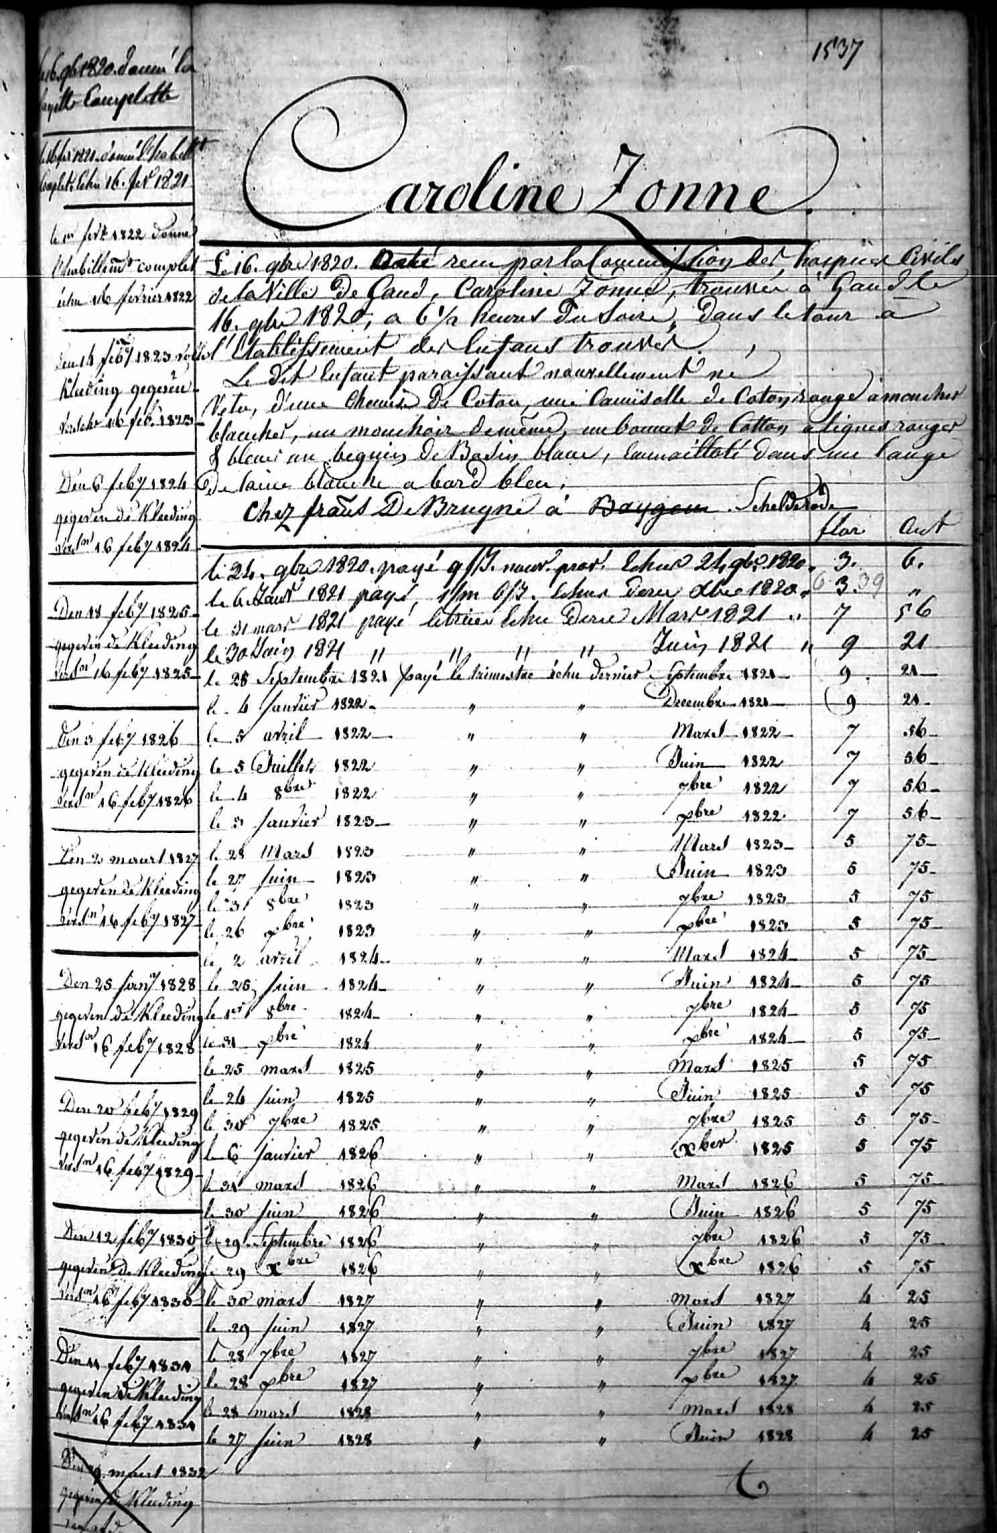 1537
le 16. 9b 1820. donné la
layette Complette
le 16 fev 1821. donné l'habillt
complet Echu 16. fevr 1821
le 1er fevr 1822 donné
l'habillemt complet
échu 16 fevrier 1822
den 14 feby 1823
Kleeding gegeven
verschr 16 feb. 1823
Den 6 feby 1824
gegeven de Kleeding
versn 16 feby 1824
Den 18 feby 1825
gegeven de Kleeding
versn 16 feby 1825
Den 3 feby 1826
gegeven de Kleeding
versn 16 feby 1826
Den 20 maart 1827
gegeven de Kleeding
versn 16 feby 1827
Den 25 jany 1828
gegeven de Kleeding
versn 16 feby 1828
Den 20 feby 1829
gegeven de Kleeding
versn 16 feby 1829
Den 12 feby 1830
gegeven de Kleeding
versn 16 feby 1830
Den 11 feby 1831
gegeven de Kleeding
versn 16 feby 1831
Den 29 maart 1832
gegeven de Kleeding
Caroline Zonne.
Le 16. 9bre 1820. Daté recu par la Commission des hospices Civils
de la Ville de Gand, Caroline Zonne, trouvée à Gand le
16. 9bre 1820, a 6 1/2 heures du soire, dans le tour à
l'Etablissement des Enfans trouvés.
Le dit Enfant paraissant nouvellement né
Vetu, d'une Chemise De Coton, une Camisolle de Coton rouge a mouches
blanches, un mouchoir de même, un bonnet de Cotton a lignes rouges
& bleues un beguin de Basin blanc, Emmailloté dans une lange
de laine blanche a bord bleu.
Chez frans De Bruyne à Baygem Schelderode
flor Cent
le 24. 9bre 1820. payé 9f/J. nour. prov. Echue 24. 9bre 1820. 3. 6.
le 6 Janvr 1821 payé 1/m 6/J. Echue dere Xbre 1820. 6 3 39 "
le 31 mars 1821 payé le trim Echu Dere Mars 1821 " 7 56
le 30 Juin 1821 " " " " Juin 1821 " 9 21
le 28 Septembre 1821 payé le trimestre échu dernier Septembre 1821 9. 21
le 4 Janvier 1822 " " Decembre 1821 9 21
le 5 avril 1822 " " Mars 1822 7 56
le 5 Juillet 1822 " " Juin 1822 7 56
le 4 8bre 1822 " " 7bre 1822 7 56
le 3 Janvier 1823 " " xbre 1822 7 56
le 28 Mars 1823 " " Mars 1823 5 75
le 27 Juin 1823 " " Juin 1823 5 75
le 31 8bre 1823 " " 7bre 1823 5 75
le 26 xbre 1823 " " xbre 1823 5 75
le 2 avril 1824 " " Mars 1824 5 75
le 25 Juin 1824 " " Juin 1824 5 75
le 1er 8bre 1824 " " 7bre 1824 5 75
le 31 xbre 1824 " " xbre 1824 5 75
le 25 mars 1825 " " Mars 1825 5 75
le 24 Juin 1825 " " Juin 1825 5 75
le 30 7bre 1825 " " 7bre 1825 5 75
le 6 Janvier 1826 " " Xber 1825 5 75
le 31 mars 1826 " " Mars 1826 5 75
le 30 Juin 1826 " " Juin 1826 5 75
le 29 Septembre 1826 " " 7bre 1826 5 75
le 29 Xbre 1826 " " Xbre 1826 5 75
le 30 mars 1827 " " Mars 1827 4 25
le 29 Juin 1827 " " Juin 1827 4 25
le 28 7bre 1827 " " 7bre 1827 4 25
le 28 xbre 1827 " " xbre 1827 4 25
le 28 mars 1828 " " Mars 1828 4 25
le 27 Juin 1828 " " Juin 1828 4 25